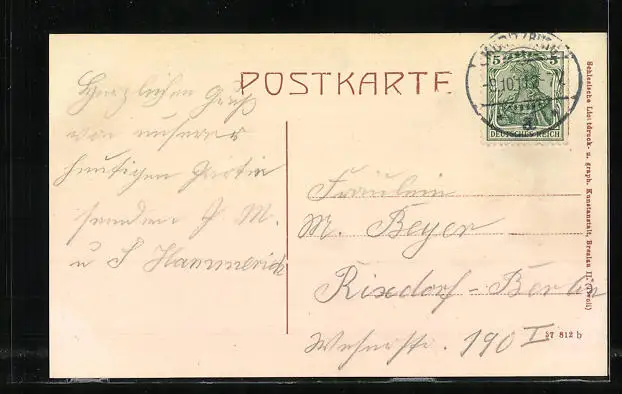 POSTKARTE
Herzlichen Gruß
von unserer
heutigen Partie
senden J M.
u S Hammerich
5 5
9.10.11
DEUTSCHES REICH
Fräulein
M. Beyer
Rixdorf-Berlin
190 I
Schlesische Lichtdruck- u. graph. Kunstanstalt, Breslau II.
57 812 b